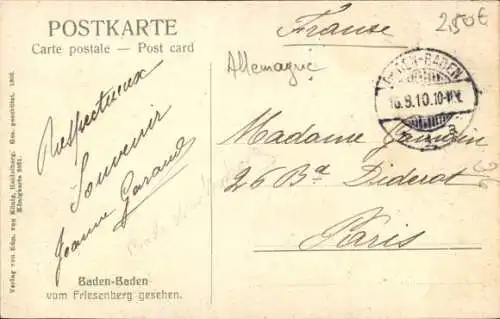 POSTKARTE
Carte postale — Post card
Franse
2,50€
Allemagne
BADEN-BADEN
16.8.10.10-11V.
Respectueux
Souvenir
Jeanne Garaud
Madame
26 Bd Diderot
Paris
Baden-Baden
vom Friesenberg gesehen.
Verlag von Edm. von König, Heidelberg. Ges. geschützt.
Königkarte